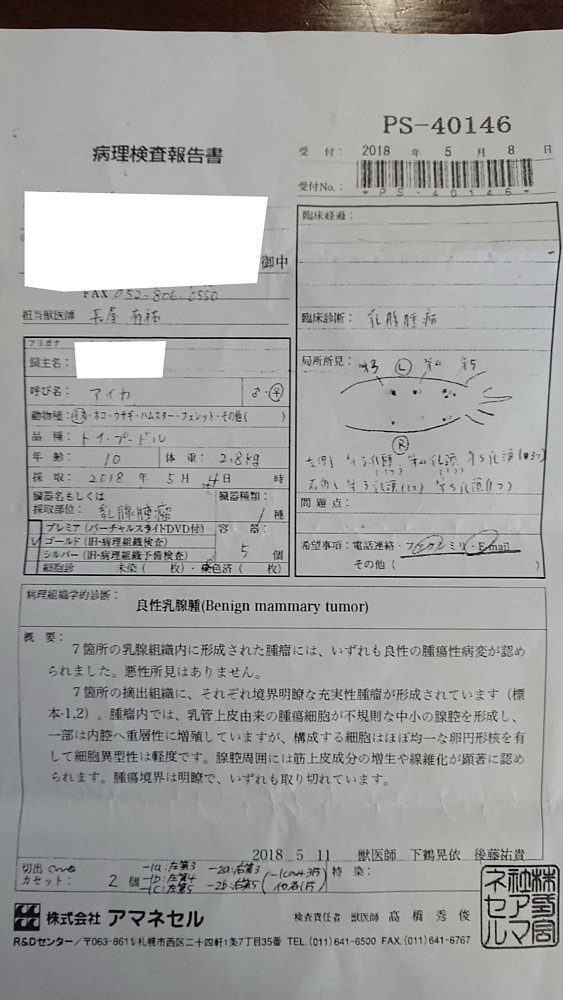 PS-40146
病理検査報告書
受 付： 2018 年 5 月 8 日
受付No.：
*PS-40146*
御中
FAX 052-806-2550
担当獣医師
臨床経過：
臨床診断： 乳腺腫瘍
フリガナ
飼主名：
呼び名： アイカ ♂・♀
動物種：イヌ・ネコ・ウサギ・ハムスター・フェレット・その他( )
品 種： トイ・プードル
年 齢： 10 体 重： 2.8kg
採 取： 2018 年 5月 4日 時
臓器名もしくは
採取部位： 乳腺腫瘍
臓器種類： 1 種
プレミア（バーチャルスライドDVD付）
ゴールド（旧・病理組織検査）
シルバー（旧・病理組織予備検査）
細胞診 未染（ 枚）・染色済（ 枚）
容 器： 5 個
局所所見：
第3 L 第4 第5
R
左側 第3乳頭 第4乳頭 第5乳頭
右側 第3乳頭 第5乳頭
問 題 点：
希望事項：電話連絡・ファクシミリ・E-mail
その他（
病理組織学的診断：
良性乳腺腫(Benign mammary tumor)
概 要：
7箇所の乳腺組織内に形成された腫瘤には、いずれも良性の腫瘍性病変が認め
られました。悪性所見はありません。
7箇所の摘出組織に、それぞれ境界明瞭な充実性腫瘤が形成されています（標
本-1,2）。腫瘤内では、乳管上皮由来の腫瘍細胞が不規則な中小の腺腔を形成し、
一部は内腔へ重層性に増殖していますが、構成する細胞はほぼ均一な卵円形核を有
して細胞異型性は軽度です。腺腔周囲には筋上皮成分の増生や線維化が顕著に認め
られます。腫瘍境界は明瞭で、いずれも取り切れています。
2018 5 11 獣医師 下鶴晃依 後藤祐貴
切出
カセット： 2 個
-1a：左第3 -2a：右第3
-1b：左第4 -2b：右第5
-1c：左第5
特 染：
株式会社 アマネセル
検査責任者 獣医師 髙橋秀俊
R&Dセンター／〒063-8611 札幌市西区二十四軒1条7丁目35番 TEL.(011)641-6500 FAX.(011)641-6767
株式会社アマネセル